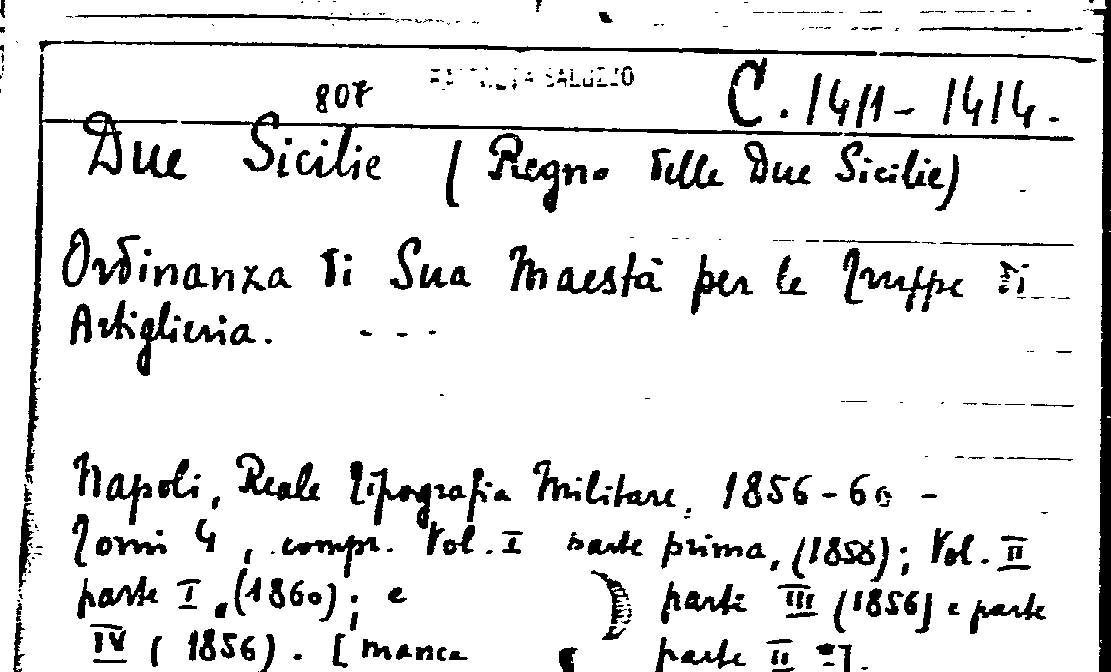 807 SALUZZO C. 1411 - 1414.
Due Sicilie (Regno delle Due Sicilie)
Ordinanza di Sua Maestà per le Truppe di
Artiglieria. - - -
Napoli, Reale Tipografia Militare, 1856-60 -
Tomi 4, compr. Vol. I parte prima, (1858); Vol. II
parte I, (1860); e parte III (1856) e parte
IV (1856). [manca parte II